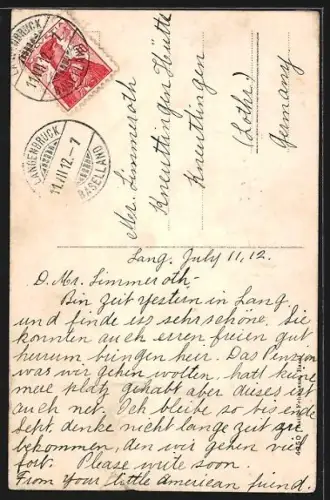 LANGENBRUCK
11.VII.12.-7
BASELLAND
LANGENBRUCK
11.VII.12.-7
BASELLAND
Mr. Limmeroth
Kneuttlingen Hütte
Kneuttlingen
(Lothr.)
Germany
Lang. July 11, 12.
D. Mr. Limmeroth -
Bin zeit yestern in Lang
und finde es sehr schöne. Sie
konnten auch erren freien gut
herum bringen heir. Das Penzion
was wir gehen wolten, hatt keine
mere platz gehabt aber dieses ist
auch net. Ich bleibe so bis ende
Sept. denke nicht lange zeit zu
bekommen, den wir gehen viel
fort. Please write soon.
From your little American friend.